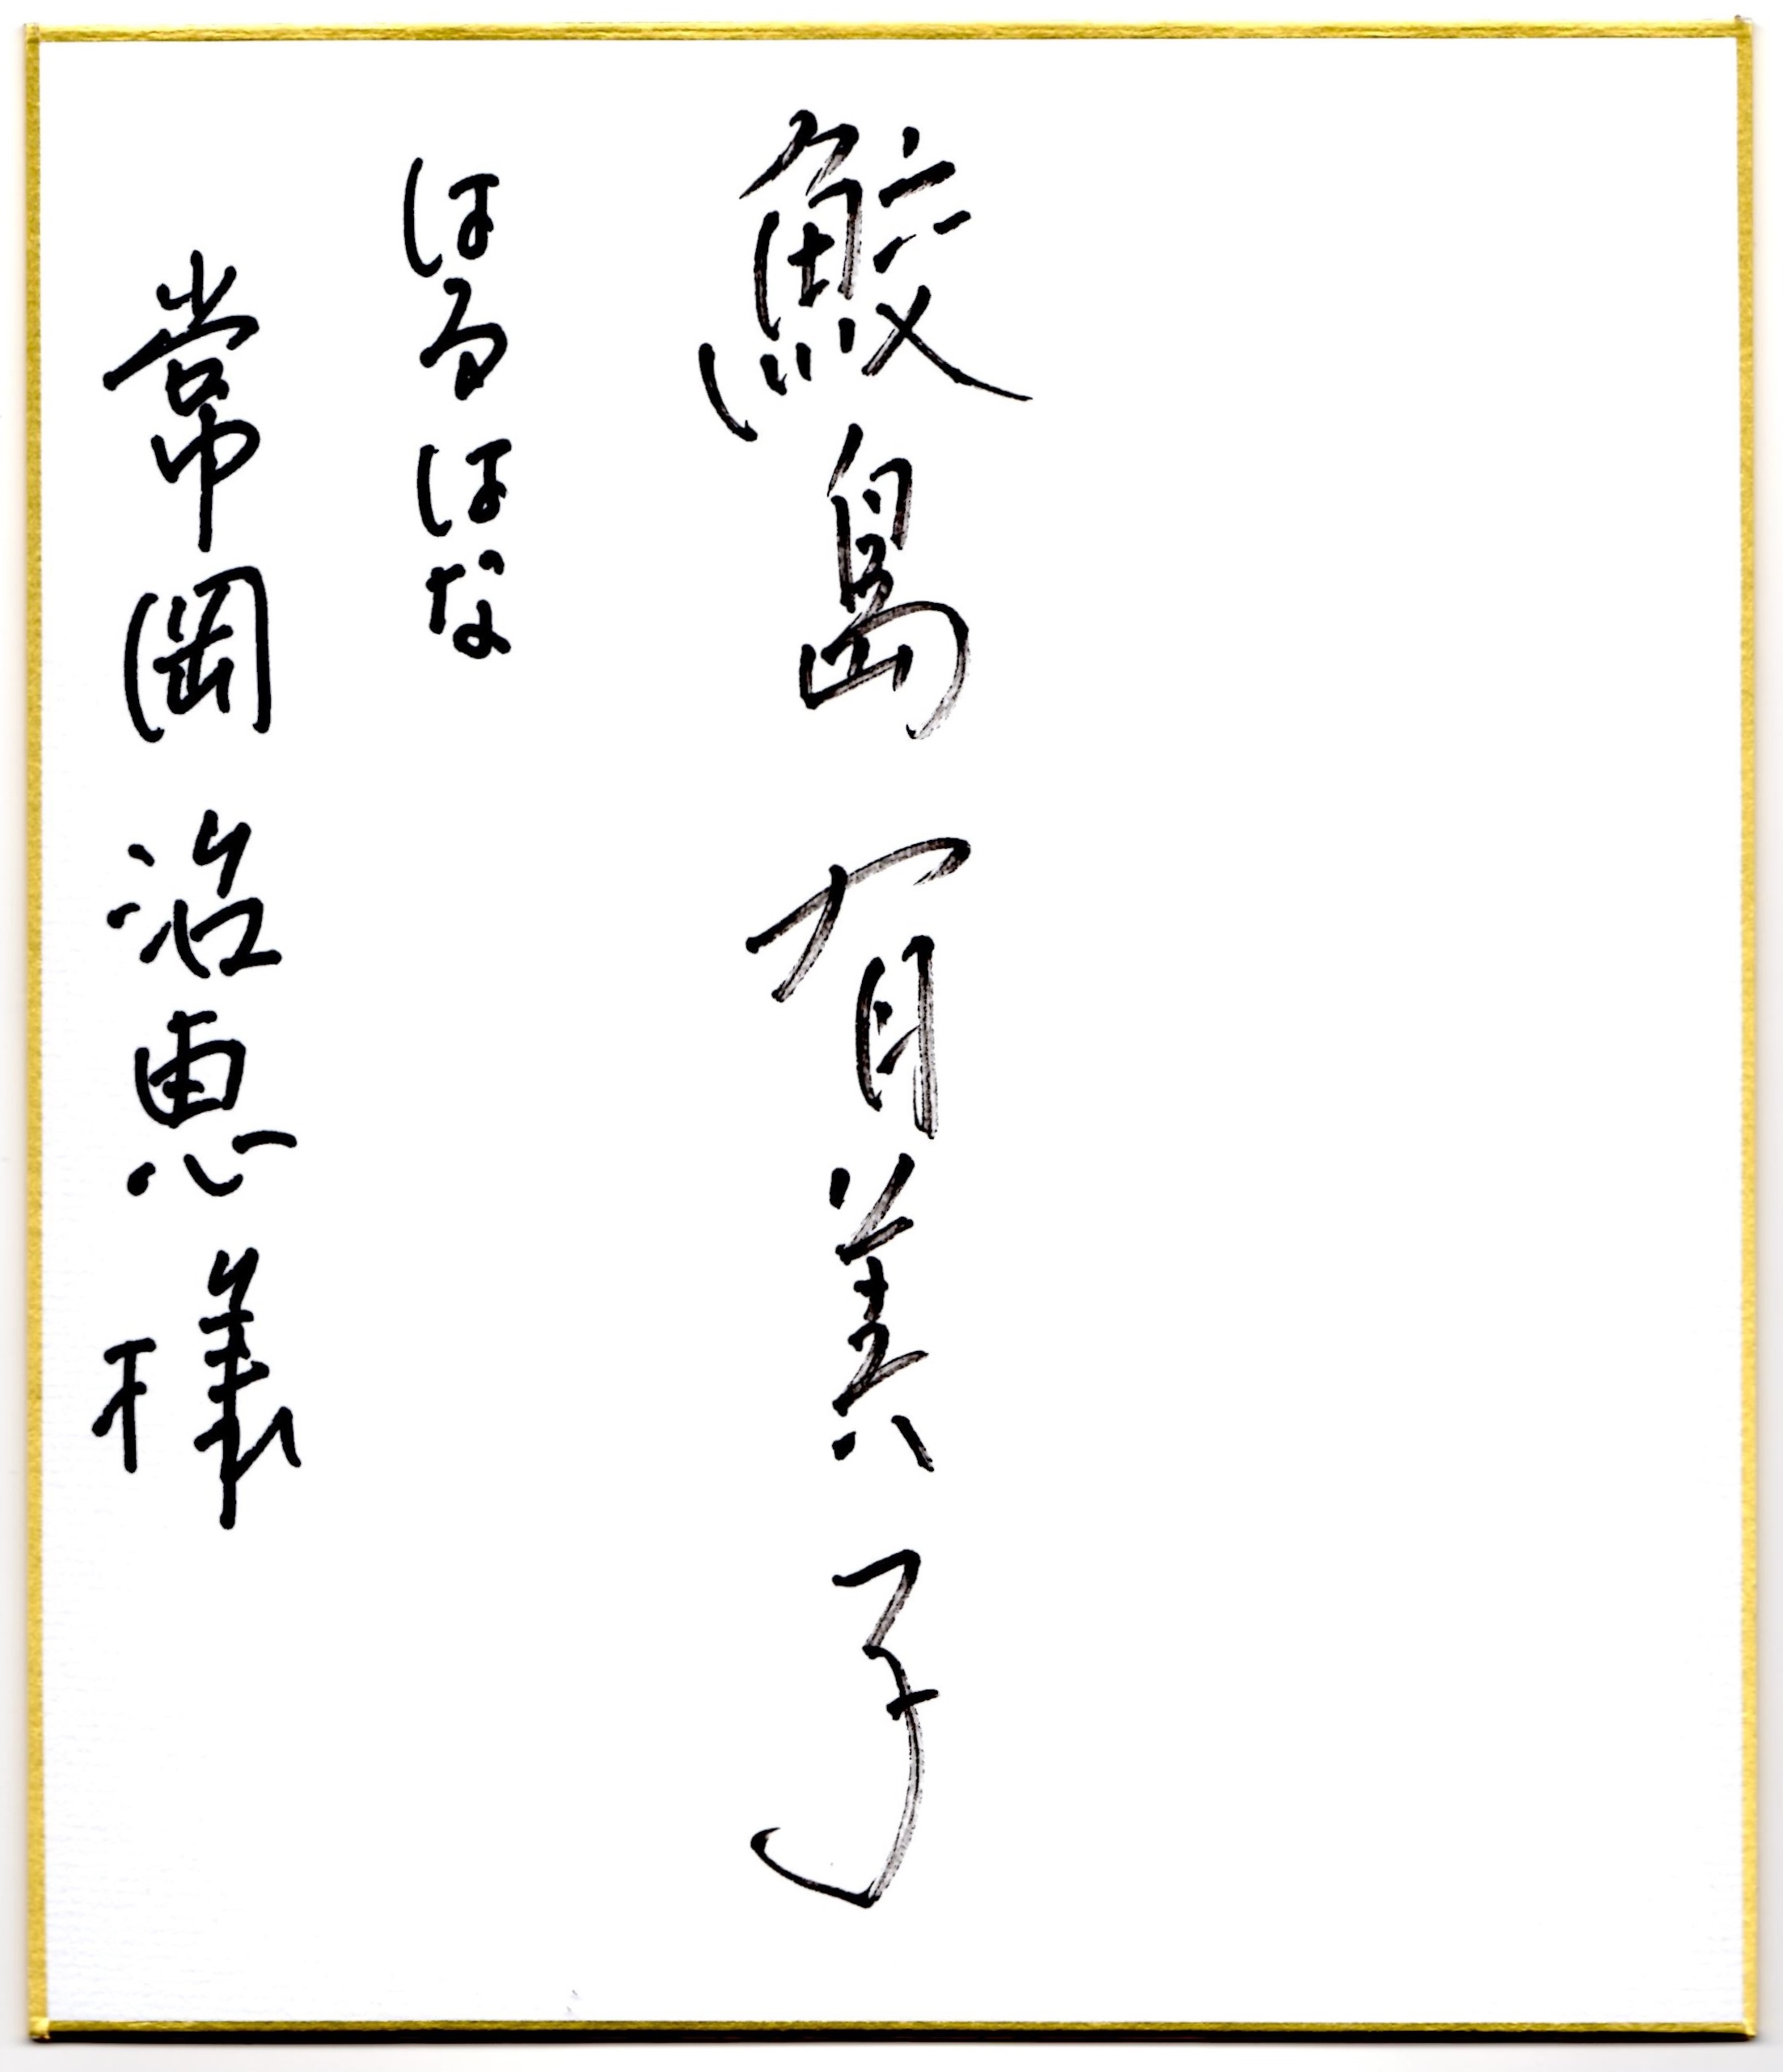 鮫島有美子
はるはな
常岡治恵様